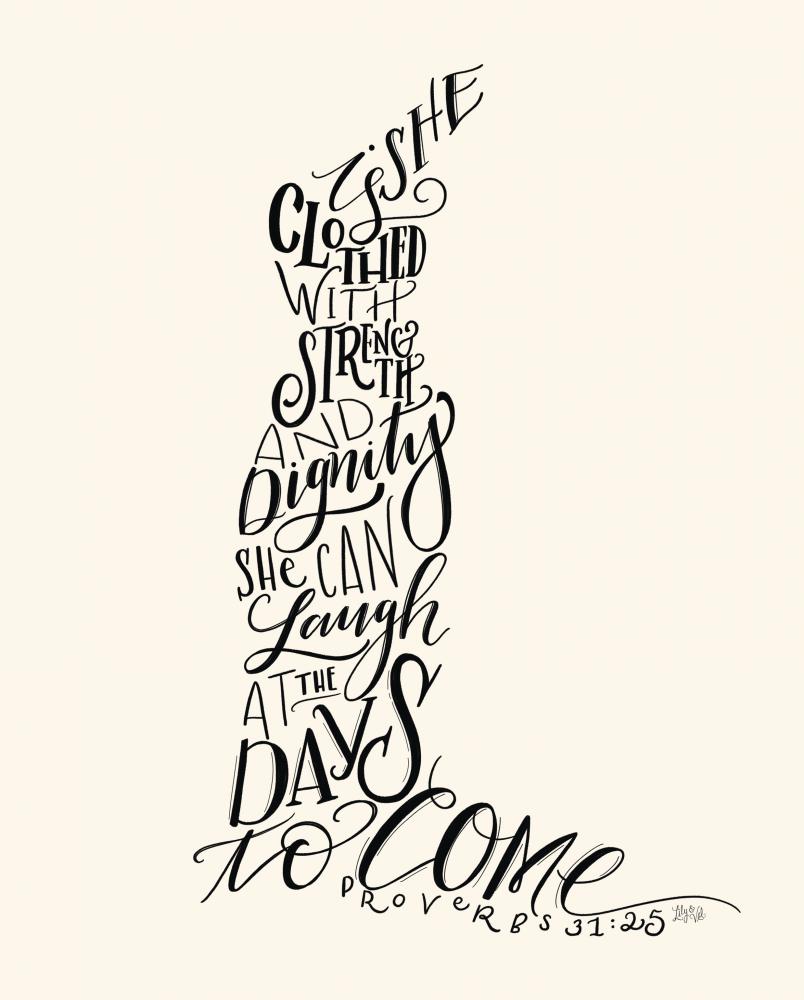 SHE
is
CLOTHED
WITH
STRENGTH
AND
Dignity
SHe CAN
Laugh
AT THE
DAYS
to COMe
PROVeRBS 31:25
Lily & Val